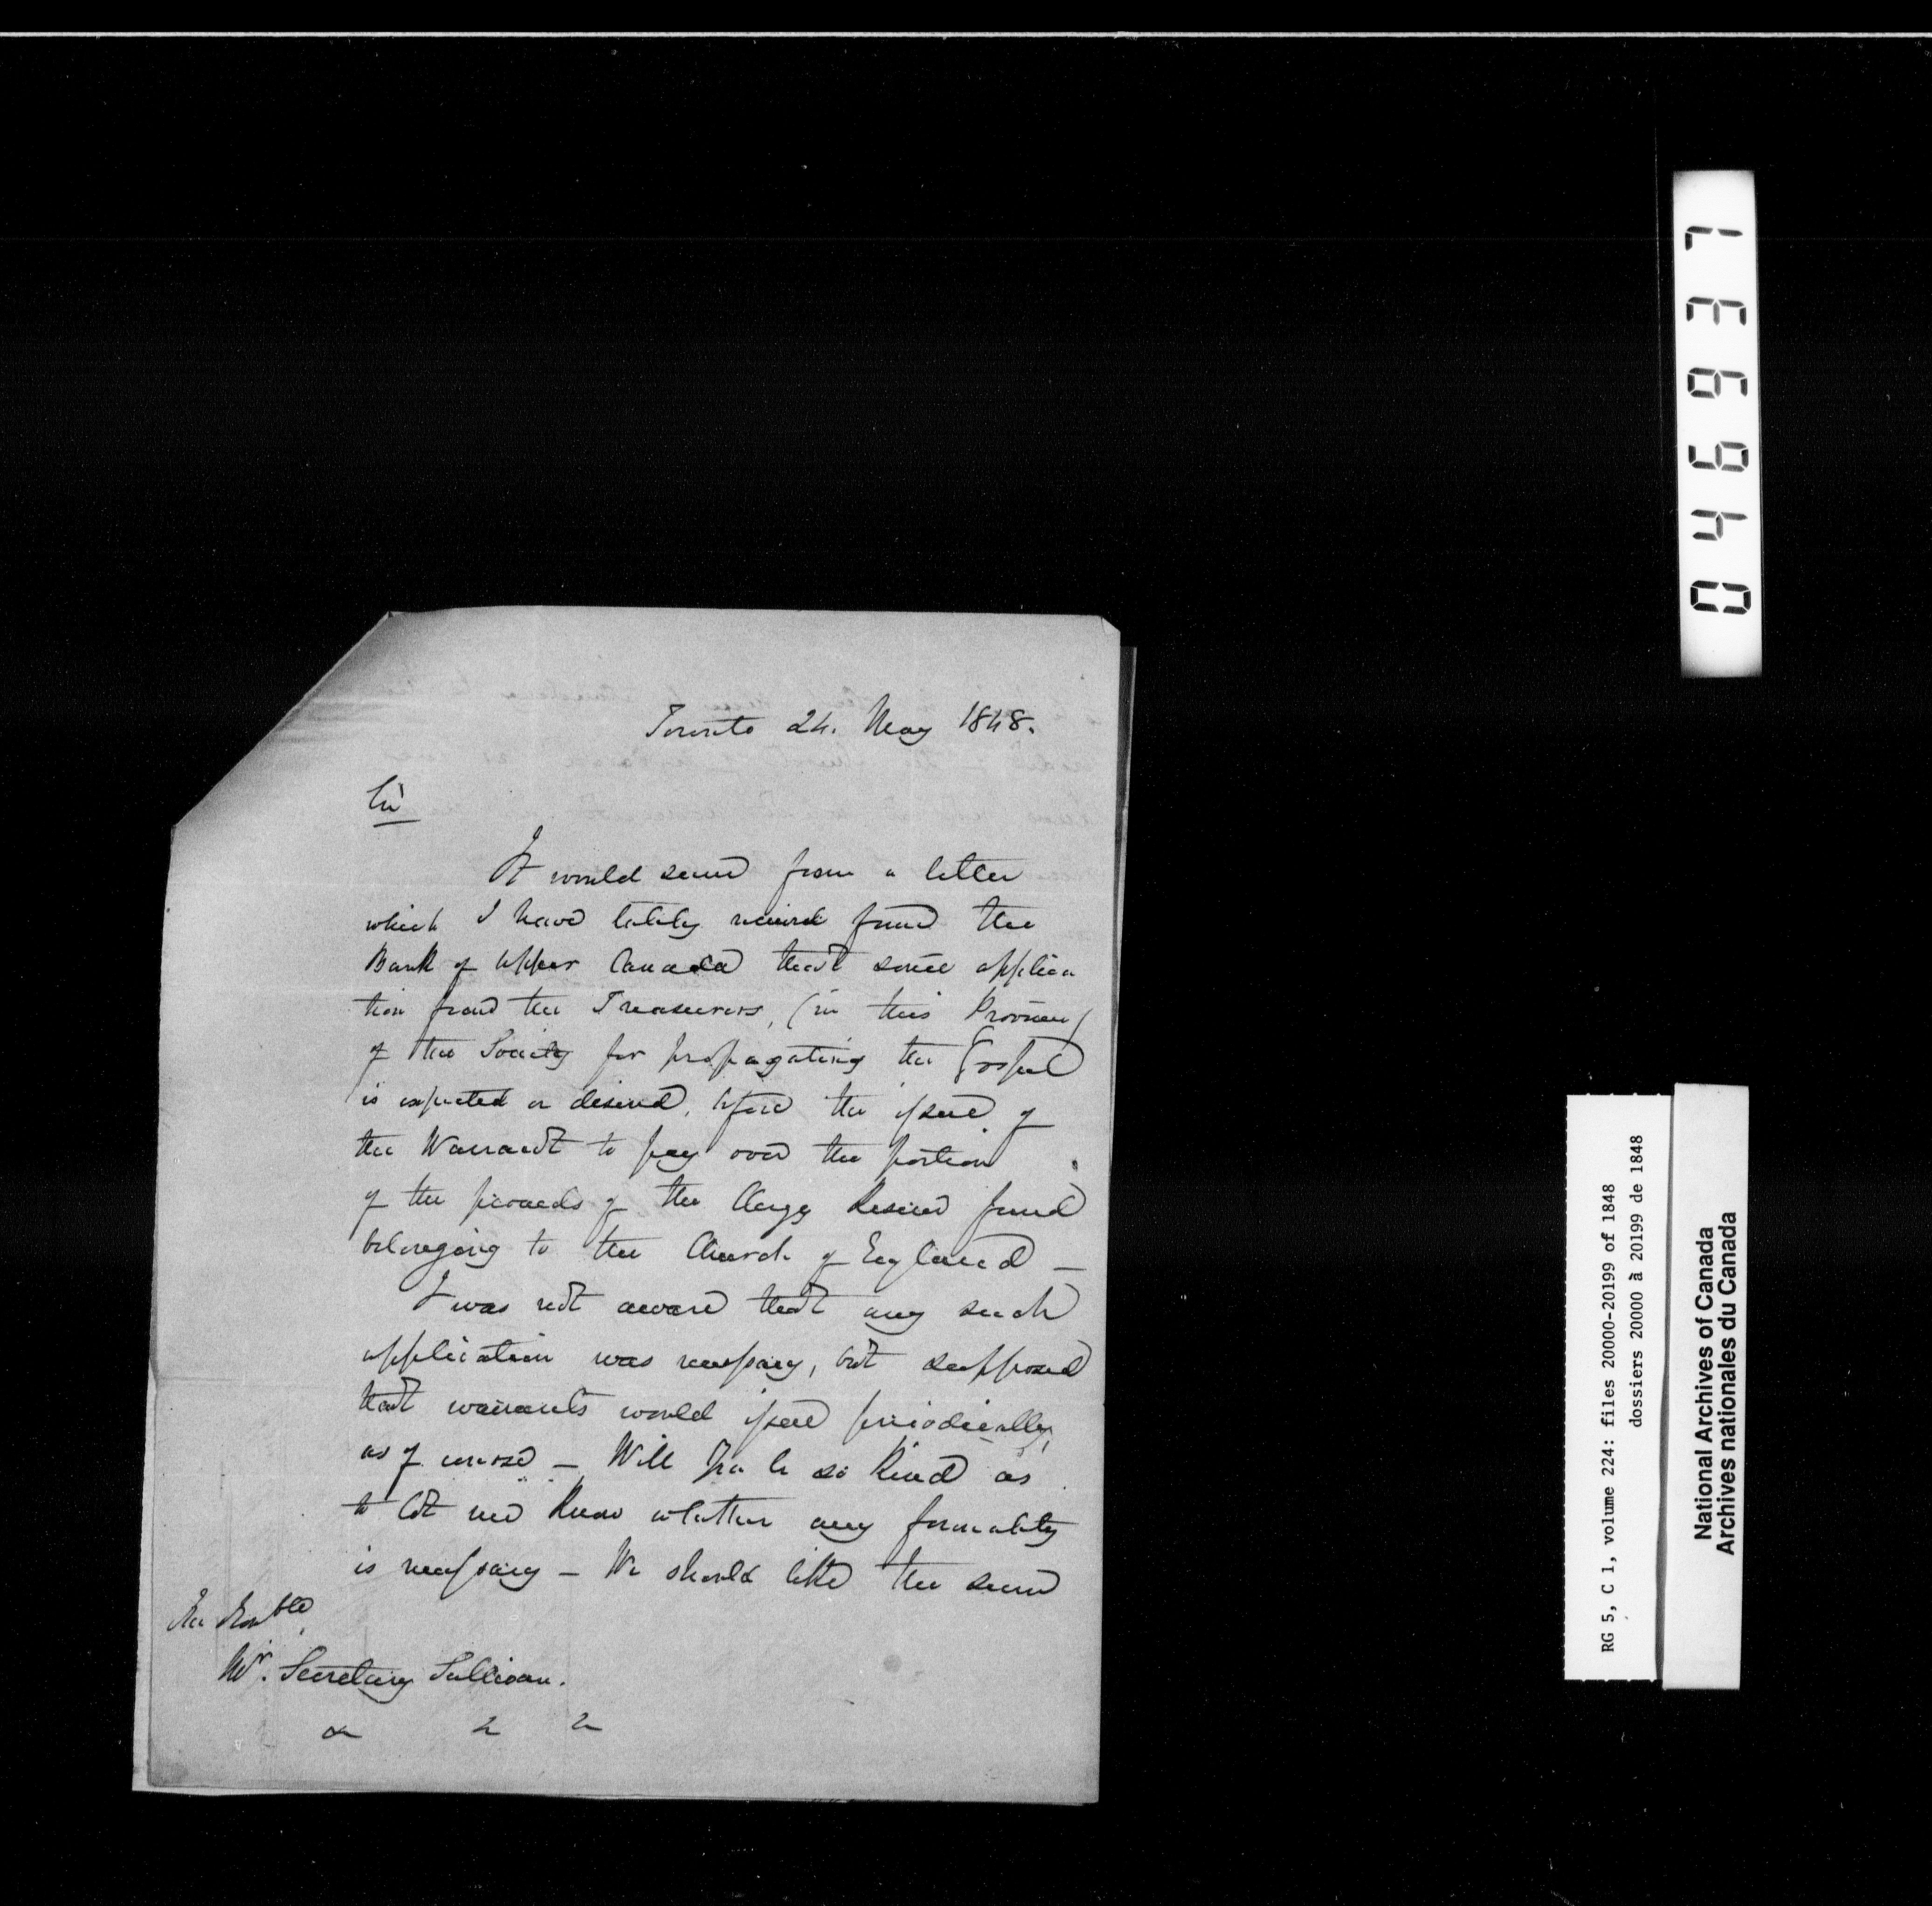 Toronto 24. May 1848.
Sir
It would seem from a letter
which I have lately received from the
Bank of Upper Canada that some applica
tion from the Treasurers, (in this Province)
of the Society for propagating the Gospel
is expected or desired, before the issue of
the Warrant to pay over the portion
of the proceeds of the Clergy Reserve fund
belonging to the Church of England —
I was not aware that any such
application was necessary, but supposed
that warrants would issue periodically,
as of course — Will you be so kind as
to let me know whether any formality
is necessary — We should like the sum
The Honble.
Mr. Secretary Sullivan.
046937
RG 5, C 1, volume 224: files 20000-20199 of 1848
dossiers 20000 à 20199 de 1848
National Archives of Canada
Archives nationales du Canada